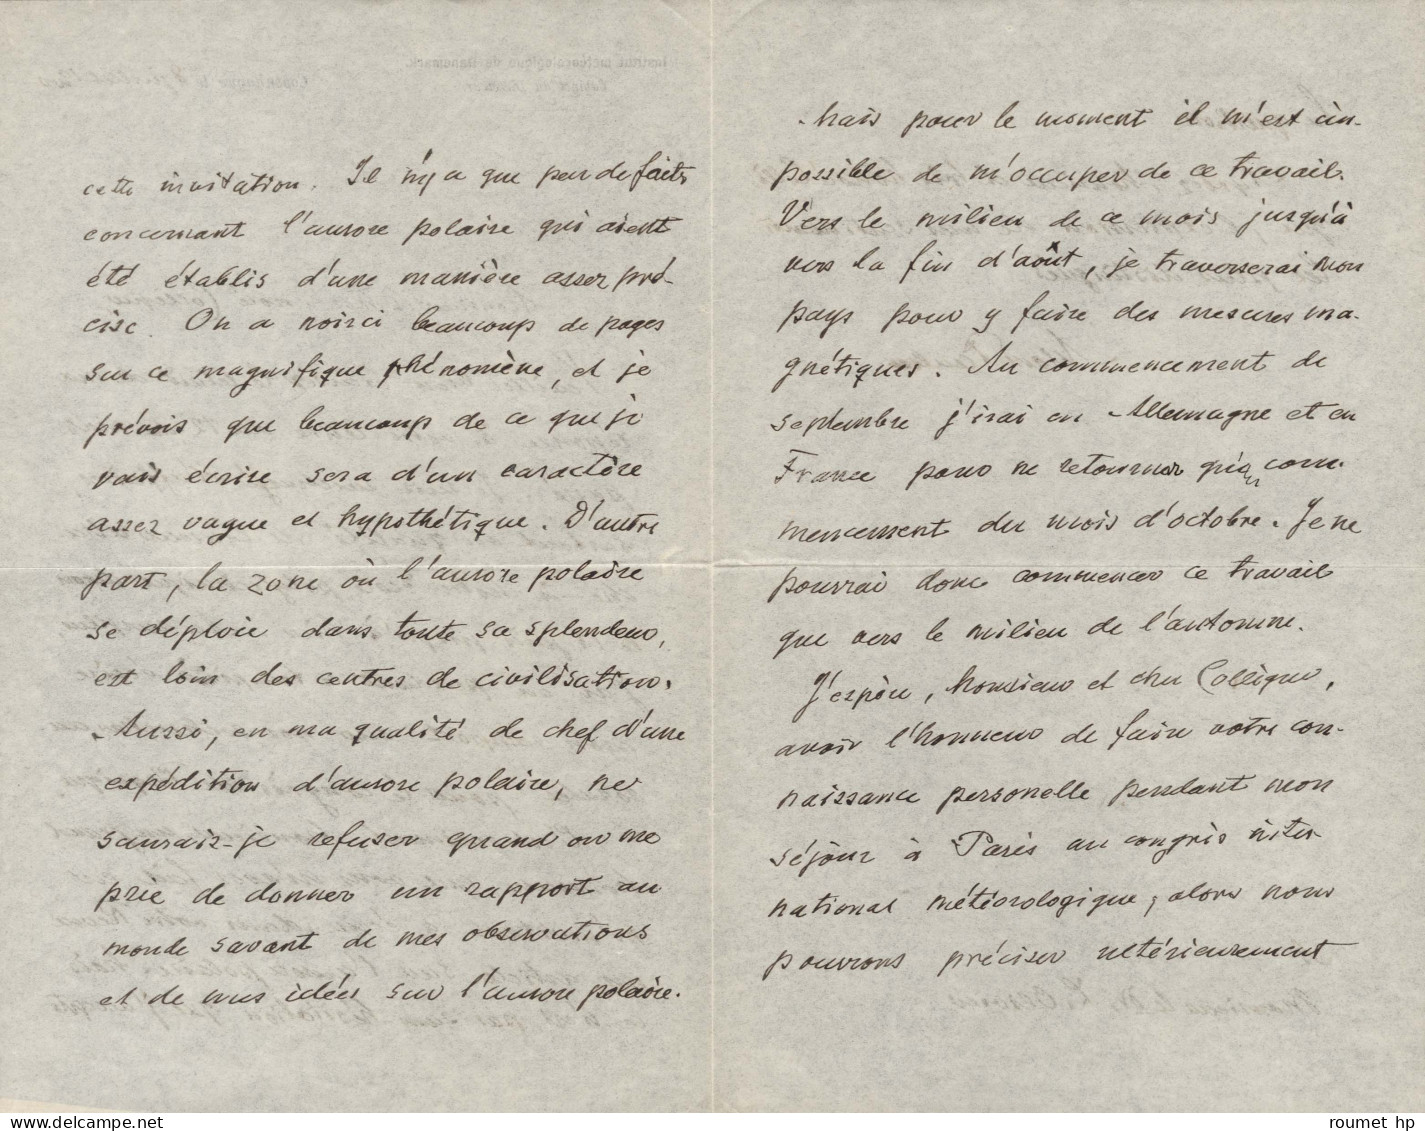 cette invitation. Il n'y a que peu de faits
concernant l'aurore polaire qui aient
été établis d'une manière assez pré-
cise. On a noirci beaucoup de pages
sur ce magnifique phénomène, et je
prévois que beaucoup de ce que je
vais écrire sera d'un caractère
assez vague et hypothétique. D'autre
part, la zone où l'aurore polaire
se déploie dans toute sa splendeur,
est loin des centres de civilisation.
Aussi, en ma qualité de chef d'une
expédition d'aurore polaire, ne
saurais-je refuser quand on me
prie de donner un rapport au
monde savant de mes observations
et de mes idées sur l'aurore polaire.
Mais pour le moment il m'est im-
possible de m'occuper de ce travail.
Vers le milieu de ce mois jusqu'à
vers la fin d'août, je traverserai mon
pays pour y faire des mesures ma-
gnétiques. Au commencement de
septembre j'irai en Allemagne et en
France pour ne retourner qu'au com-
mencement du mois d'octobre. Je ne
pourrai donc commencer ce travail
que vers le milieu de l'automne.
J'espère, Monsieur et cher Collègue,
avoir l'honneur de faire votre con-
naissance personelle pendant mon
séjour à Paris au congrès inter-
national météorologique; alors nous
pouvrons préciser ultérieurement
roumet hp